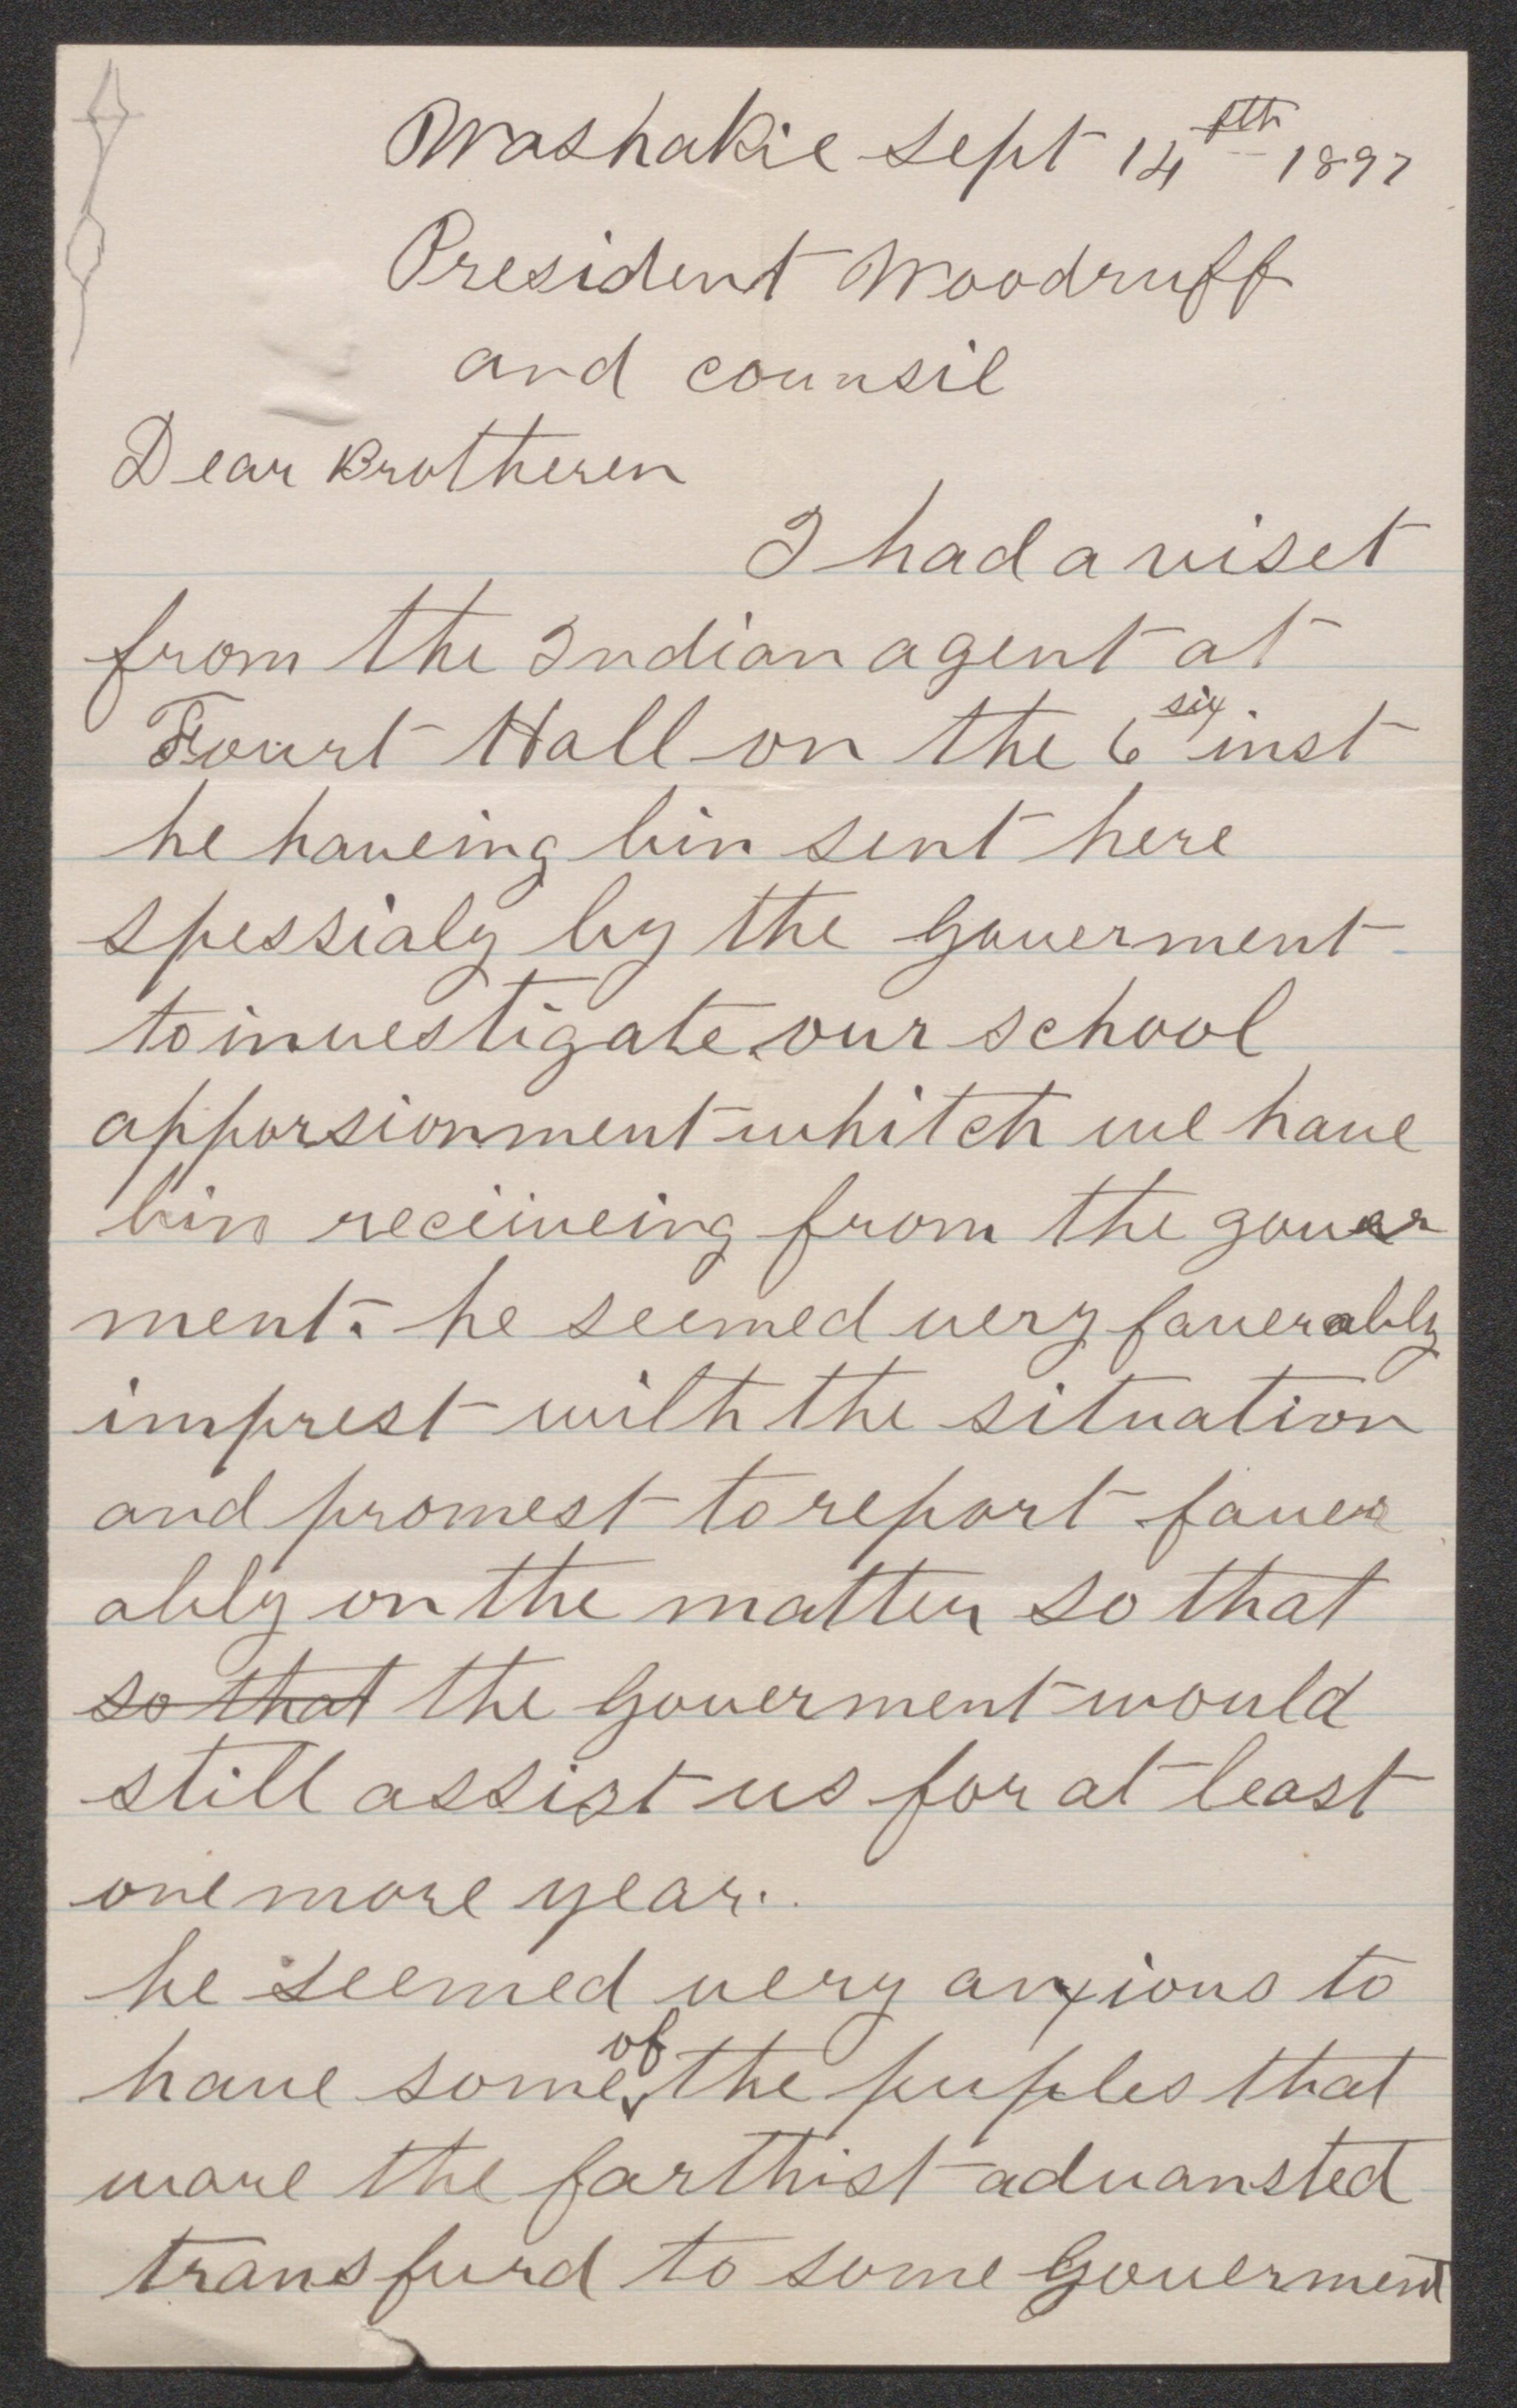 Washakie Sept 14 fth 1897
President Woodruff
and counsil
Dear Brotheren
I had a viset
from the Indian agent at
Fourt Hall on the 6 six inst
he haveing bin sent here
spessialy by the Goverment
to investigate our school
apporsionment whitch we have
bin reciiveing from the gover
ment. he seemed very faverably
imprest with the situation
and promest to report faver
ably on the matter so that
so that the Goverment would
still assist us for at least
one more year.
he seemed very anxious to
have some of the puples that
ware the farthist advansted
transfurd to some Goverment